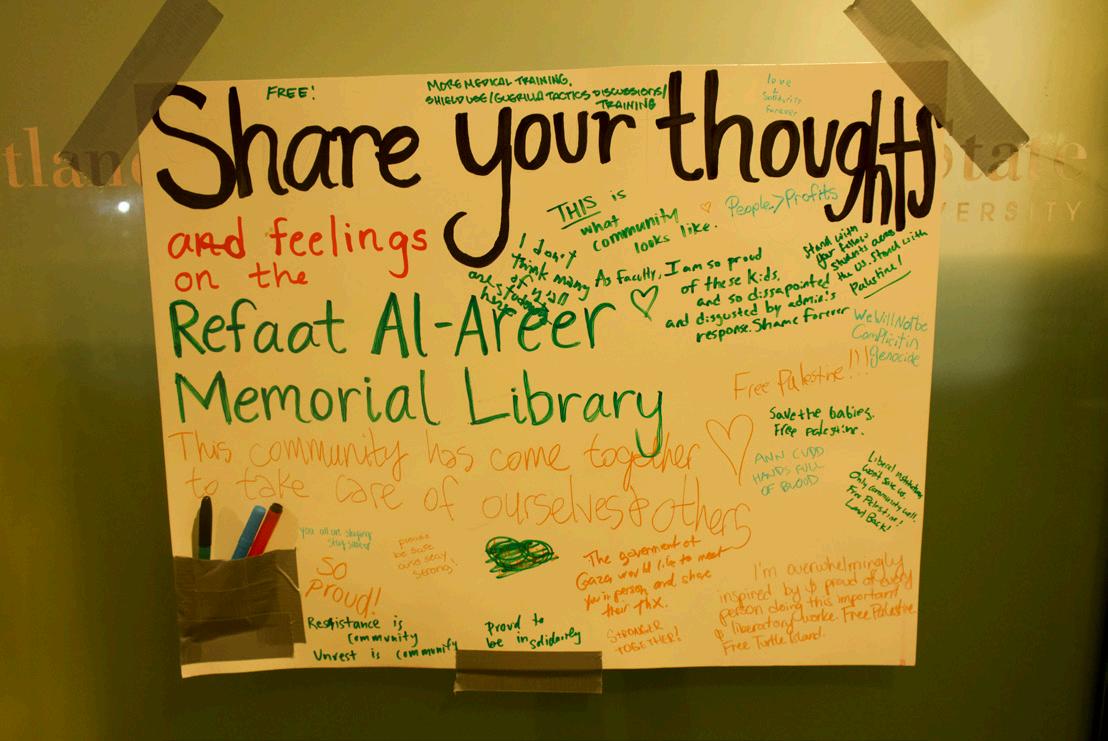 FREE!
MORE MEDICAL TRAINING,
SHIELD USE/GUERILLA TACTICS DISCUSSIONS/
TRAINING
love
&
Solidarity
Forever
Share your thoughts
and feelings
on the
Refaat Al-Areer
Memorial Library
tland State
VERSITY
THIS is
what
community
looks like.
People > Profits
I don't
think many
of y'all
are students
here
As faculty, I am so proud
of these kids,
and so dissapointed
and disgusted by admin's
response. Shame forever
Stand with
your fellow
students across
the US. Stand with
Palestine!
We Will Not be
Complicit in
genocide
Free Palestine!!!
Save the babies.
Free Palestine.
ANN CUDD
HANDS FULL
OF BLOOD
Liberal institutions
won't save us.
Only community will.
Free Palestine!
Land Back!
This community has come together
to take care of ourselves & others
you all are
stay safer
please
be safe
and stay
strong!
So
Proud!
Resistance is
Community
Unrest is Community
Proud to
be in solidarity
The goverment of
Gaza would like to meet
you in person and share
their THX.
STRONGER
TOGETHER!
I'm overwhelmingly
inspired by & proud of every
person doing this important
& liberatory worke. Free Palestine.
Free Turtle Island.